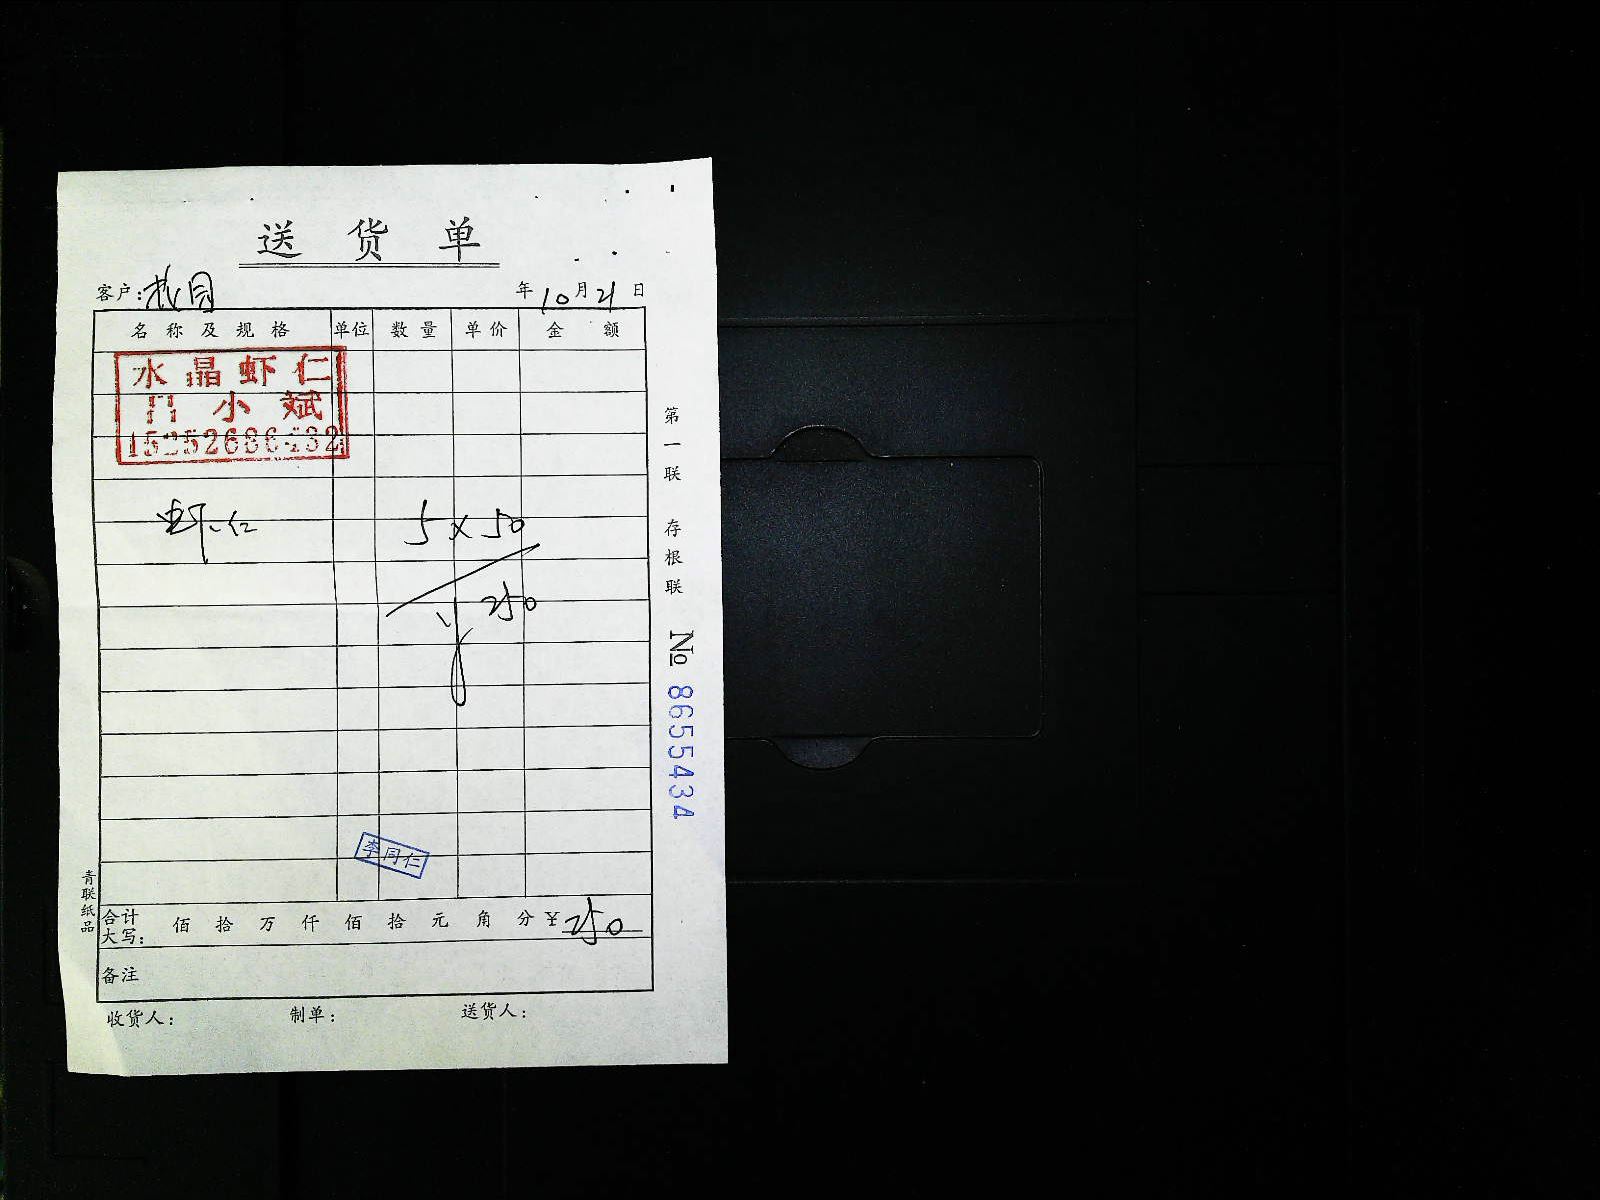 送货单
客户: 年10月21日
名称及规格 单位 数量 单价 金额
水晶虾仁
小斌
虾仁 5×50
¥250
李同仁
合计大写: 佰 拾 万 仟 佰 拾 元 角 分 ¥250
备注
收货人: 制单: 送货人:
第一联 存根联 № 8655434
青联纸品